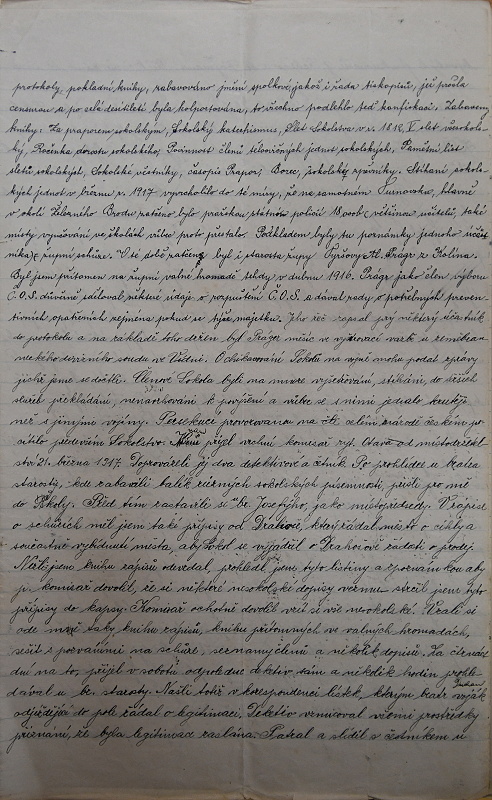 protokoly, pokladní knihy, zabavováno jmění spolkové jakož i řada tiskopisů, jež prošla
censurou a po celé desítiletí byla kolportována, to všechno podlehlo teď konfiskaci. Zabaveny
knihy: Za praporem sokolským, Sokolský katechismus, Slet Sokolstva v r. 1882, V. slet všesokol-
ský, Ročenka dorostu sokolského, Povinnost členů tělocvičných jednot sokolských, Památní list
sletů sokolských, Sokolské věstníky, časopis Prapor, Borec, sokolské zpěvníky. Stíhání sokol-
ských jednot v březnu r. 1917 vyvrcholilo do té míry, že na samotném Turnovsku, hlavně
v okolí Železného Brodu zatčeno bylo pražskou státní policií 18 osob, většinou učitelů, také
místy vyučování ve školách vůbec proto přestalo. Podkladem byly tu poznámky jednoho účast-
níka župní schůze. V té době zatčený byl i starosta župy Tyršovy Al. Prágr z Kolína.
Byl jsem přítomen na župní valné hromadě tehdy v dubnu 1916. Prágr jako člen výboru
Č.O.S. důvěrně sděloval některé údaje o rozpuštění Č.O.S. a dával rady o potřebných preven-
tivních opatřeních zejména pokud se týče majetku. Jeho řeč zapsal prý některý účastník
do protokolu a na základě toho držen byl Prágr měsíc ve vyšetřovací vazbě u zeměbran-
neckého divisního soudu ve Vídni. O šikanování Sokolů na vojně mohu podat zprávy
jichž jsme se dočtli. Členové Sokola byli na vojně vyšetřováni, stíháni, do horších
služeb překládáni, nenavrhováni k povýšení a vůbec se s nimi jednalo krutěji
než s jinými vojíny. Persekuci provozovanou na celém národě českém po-
cítilo především Sokolstvo. K nám přijel vrchní komisař ryt. Otava od místodržitel-
ství 21. března 1917. Doprovázeli jej dva detektivové a četník. Po prohlídce u bratra
starosty, kde zabavili balík různých sokolských písemností, přišli pro mě
do školy. Před tím zastavili si br. Josefýho, jako místopředsedu. V zápise
o schůzích měl jsem také přípisy od Drahovic, který žádal město o cihly a
současně vybídnutí města, aby Sokol se vyjádřil o Drahošově žádosti o prodej.
Nežli jsem knihu zápisů odevzdal, prohlédl jsem tyto listiny a s poznámkou aby
p. komisař dovolil, že si některé nesokolské dopisy vezmu strčil jsem tyto
přípisy do kapsy. Komisař ochotně dovolil vzíti si vše nesokolské. Vzali si
ode mně taky knihu zápisů, knihu přítomných ve valných hromadách,
sešit s pozváními na schůze, seznamy členů a několik dopisů. Za čtrnáct
dní na to, přijel v sobotu odpoledne detektiv sám a několik hodin prohle-
dával u br. starosty. Našli totiž v korespondenci lístek, kterým bratr voják
odjíždějící do pole žádal o legitimaci. Detektiv vynucoval různými prostředky
přiznání, že byla legitimace zaslána. Pátral a slídil s četníkem u